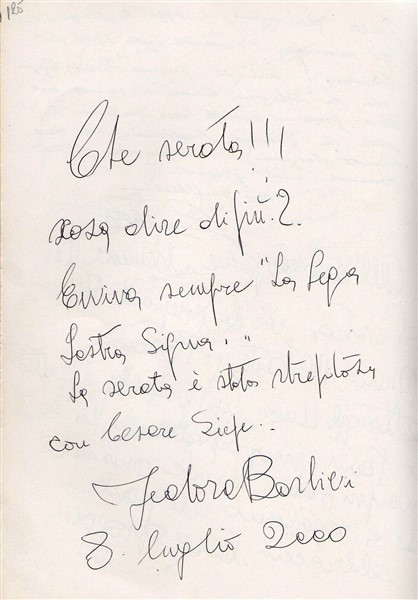 125
Che serata!!!
cosa dire di più?
Evviva sempre "La Lega
Lastra Signa.."
La serata è stata strepitosa
con Cesare Siepi..
Fedora Barbieri
8. luglio 2000